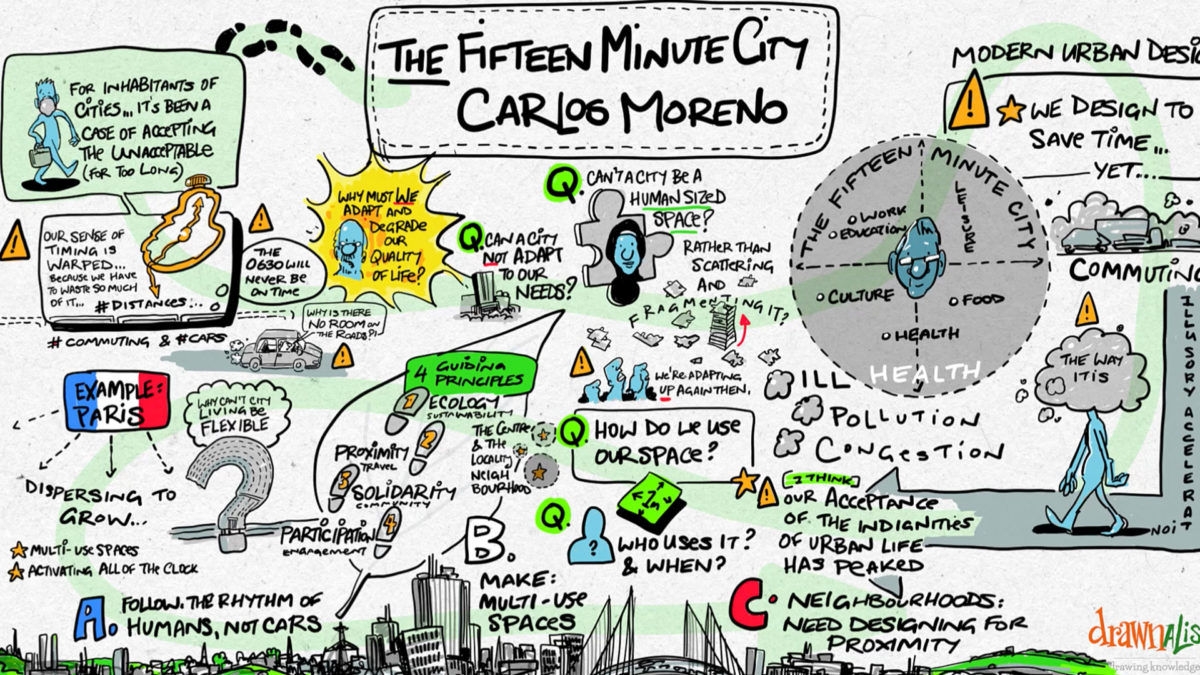 THE FIFTEEN MINUTE CITY
CARLOS MORENO
FOR INHABITANTS OF
CITIES... IT'S BEEN A
CASE OF ACCEPTING
THE UNACCEPTABLE
(FOR TOO LONG)
OUR SENSE OF
TIMING IS
WARPED...
BECAUSE WE HAVE
TO WASTE SO MUCH
OF IT...
#DISTANCES...
# COMMUTING & #CARS
THE
0630 WILL
NEVER BE
ON TIME
WHY MUST WE
ADAPT AND
DEGRADE
OUR
QUALITY
OF LIFE?
WHY IS THERE
NO ROOM ON
THE ROADS?!
Q. CAN A CITY
NOT ADAPT
TO OUR
NEEDS?
Q. CAN'T A CITY BE A
HUMAN SIZED
SPACE?
RATHER THAN
SCATTERING
AND
FRAGMENTING IT?
WE'RE ADAPTING
UP AGAIN THEN.
THE FIFTEEN MINUTE CITY
WORK
EDUCATION
LEISURE
CULTURE
FOOD
HEALTH
MODERN URBAN DESI
WE DESIGN TO
SAVE TIME...
YET....
COMMUTING
ILL HEALTH
POLLUTION
CONGESTION
THE WAY
IT IS
ILLUSORY ACCELERAT
NOI
EXAMPLE:
PARIS
DISPERSING TO
GROW...
MULTI-USE SPACES
ACTIVATING ALL OF THE CLOCK
WHY CAN'T CITY
LIVING BE
FLEXIBLE
4 GUIDING
PRINCIPLES
1 ECOLOGY
SUSTAINABILITY
2 PROXIMITY
TRAVEL
3 SOLIDARITY
COMMUNITY
4 PARTICIPATION
ENGAGEMENT
THE CENTRE
& THE
LOCALITY
NEIGH
BOURHOOD
Q. HOW DO WE USE
OUR SPACE?
Q.
?
1m
WHO USES IT?
& WHEN?
I THINK
OUR ACCEPTANCE
OF THE INDIGNITIES
OF URBAN LIFE
HAS PEAKED
A. FOLLOW THE RHYTHM OF
HUMANS, NOT CARS
B.
MAKE:
MULTI-USE
SPACES
C. NEIGHBOURHOODS:
NEED DESIGNING FOR
PROXIMITY
drawnalis
drawing knowledge